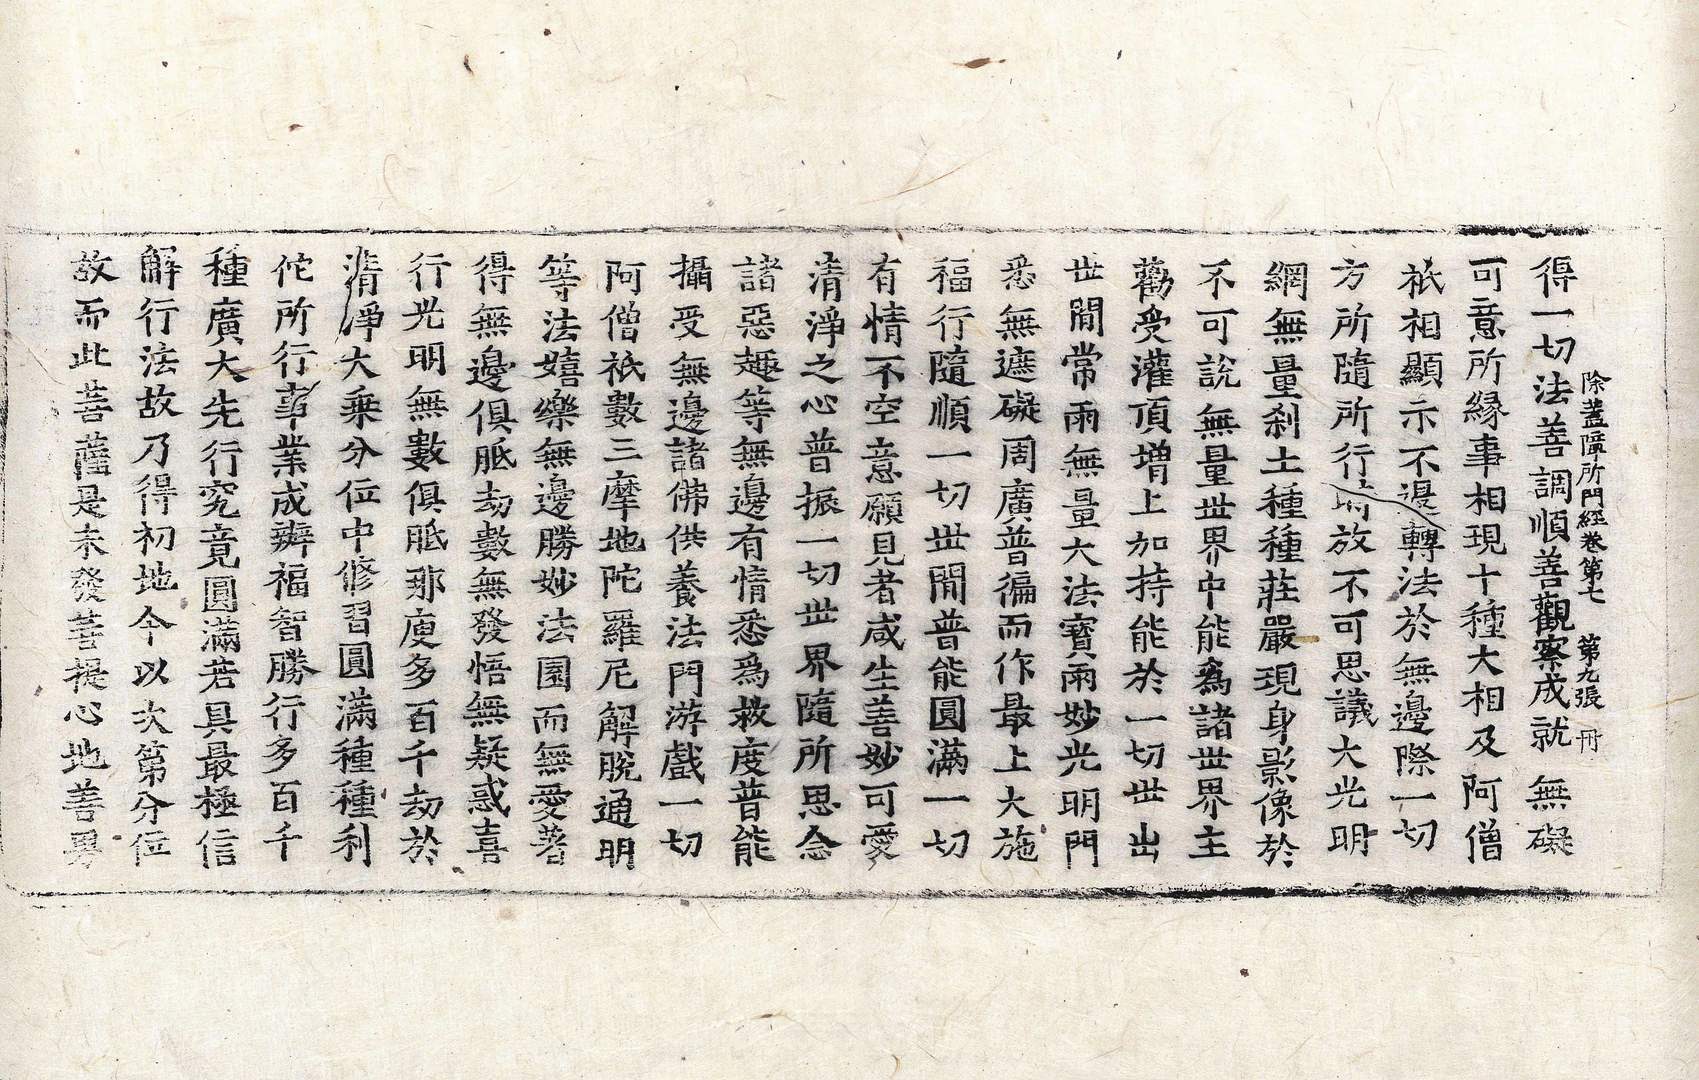 除蓋障所問經卷第七 第九張 冊
得一切法善調順善觀察成就無礙
可意所緣事相現十種大相及阿僧
祇相顯示不退轉法於無邊際一切
方所隨所行 放不可思議大光明
網無量剎土種種莊嚴現身影像於
不可說無量世界中能為諸世界主
勸受灌頂增上加持能於一切世出
世間常雨無量大法寶雨妙光明門
悉無遮礙周廣普徧而作最上大施
福行隨順一切世間普能圓滿一切
有情不空意願見者咸生善妙可愛
清淨之心普振一切世界隨所思念
諸惡趣等無邊有情悉為救度普能
攝受無邊諸佛供養法門游戲一切
阿僧祇數三摩地陀羅尼解脫通明
等法嬉樂無邊勝妙法園而無愛著
得無邊俱胝劫數無發悟無疑惑喜
行光明無數俱胝那庾多百千劫於
清淨大乘分位中修習圓滿種種利
佗所行事業成辦福智勝行多百千
種廣大先行究竟圓滿若具最極信
解行法故乃得初地今以次第分位
故而此菩薩是未發菩提心地善男